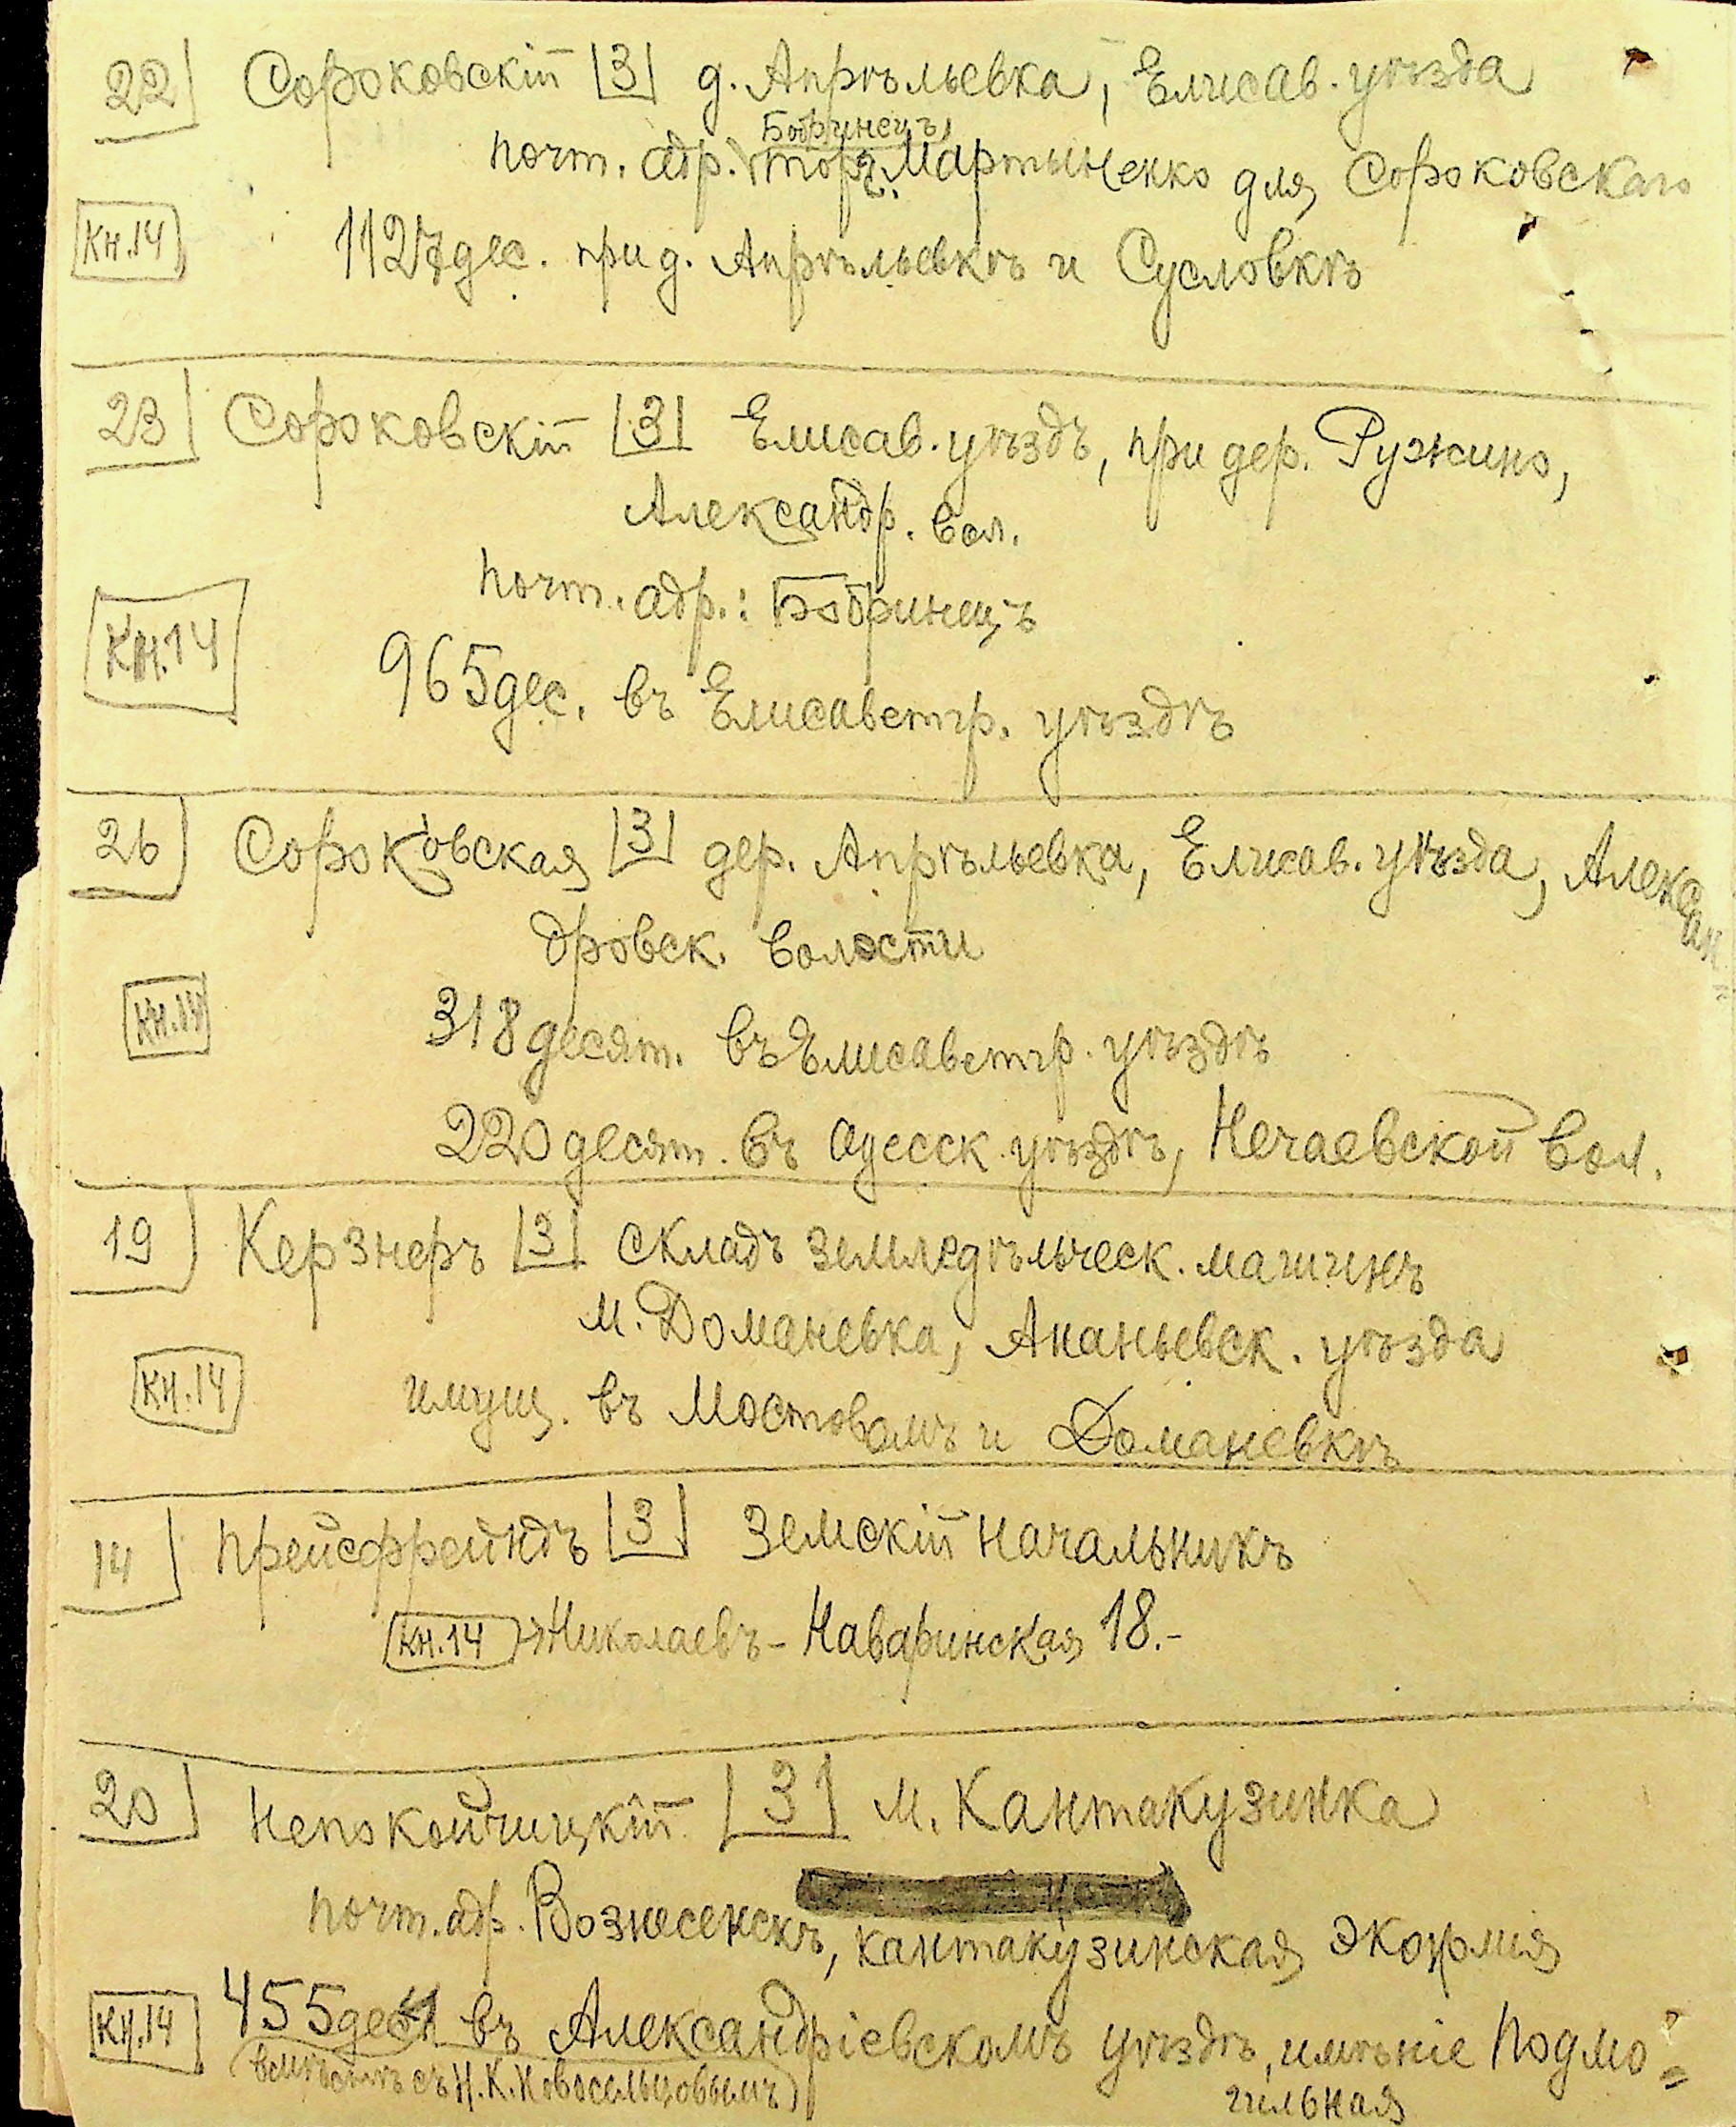 22 Сороковскій 3 д. Апрѣльевка, Елисав. уѣзда
Бобринецъ,
почт. адр. торг. Мартыненко для Сороковскаго
Кн.14 1127 дес. при д. Апрѣльевкѣ и Сусловкѣ
23 Сороковскій 3 Елисав. уѣздъ, при дер. Ружино,
Александр. вол.
почт. адр.: Бобринецъ
Кн.14
965 дес. въ Елисаветгр. уѣздѣ
26 Сороковская 3 дер. Апрѣльевка, Елисав. уѣзда, Алексан=
дровск. волости
Кн.14 318 десят. въ Елисаветгр. уѣздѣ
220 десят. въ Одесск. уѣздѣ, Нечаевской вол.
19 Керзнеръ 3 складъ земледѣльческ. машинъ
м. Доманевка, Ананьевск. уѣзда
Кн.14 имущ. въ Мостовомъ и Доманевкѣ
14 Прейсфрейндъ 3 Земскій начальникъ
Кн.14 Николаевъ - Наваринская 18.-
20 Непокойчицкій 3 м. Кантакузинка
почт. адр. Вознесенскъ, кантакузинская экономія
Кн.14 455 дес. въ Александріевскомъ уѣздѣ, имѣніе Подмо=
(вмѣстѣ съ Н.К. Новосельцовымъ) гильная